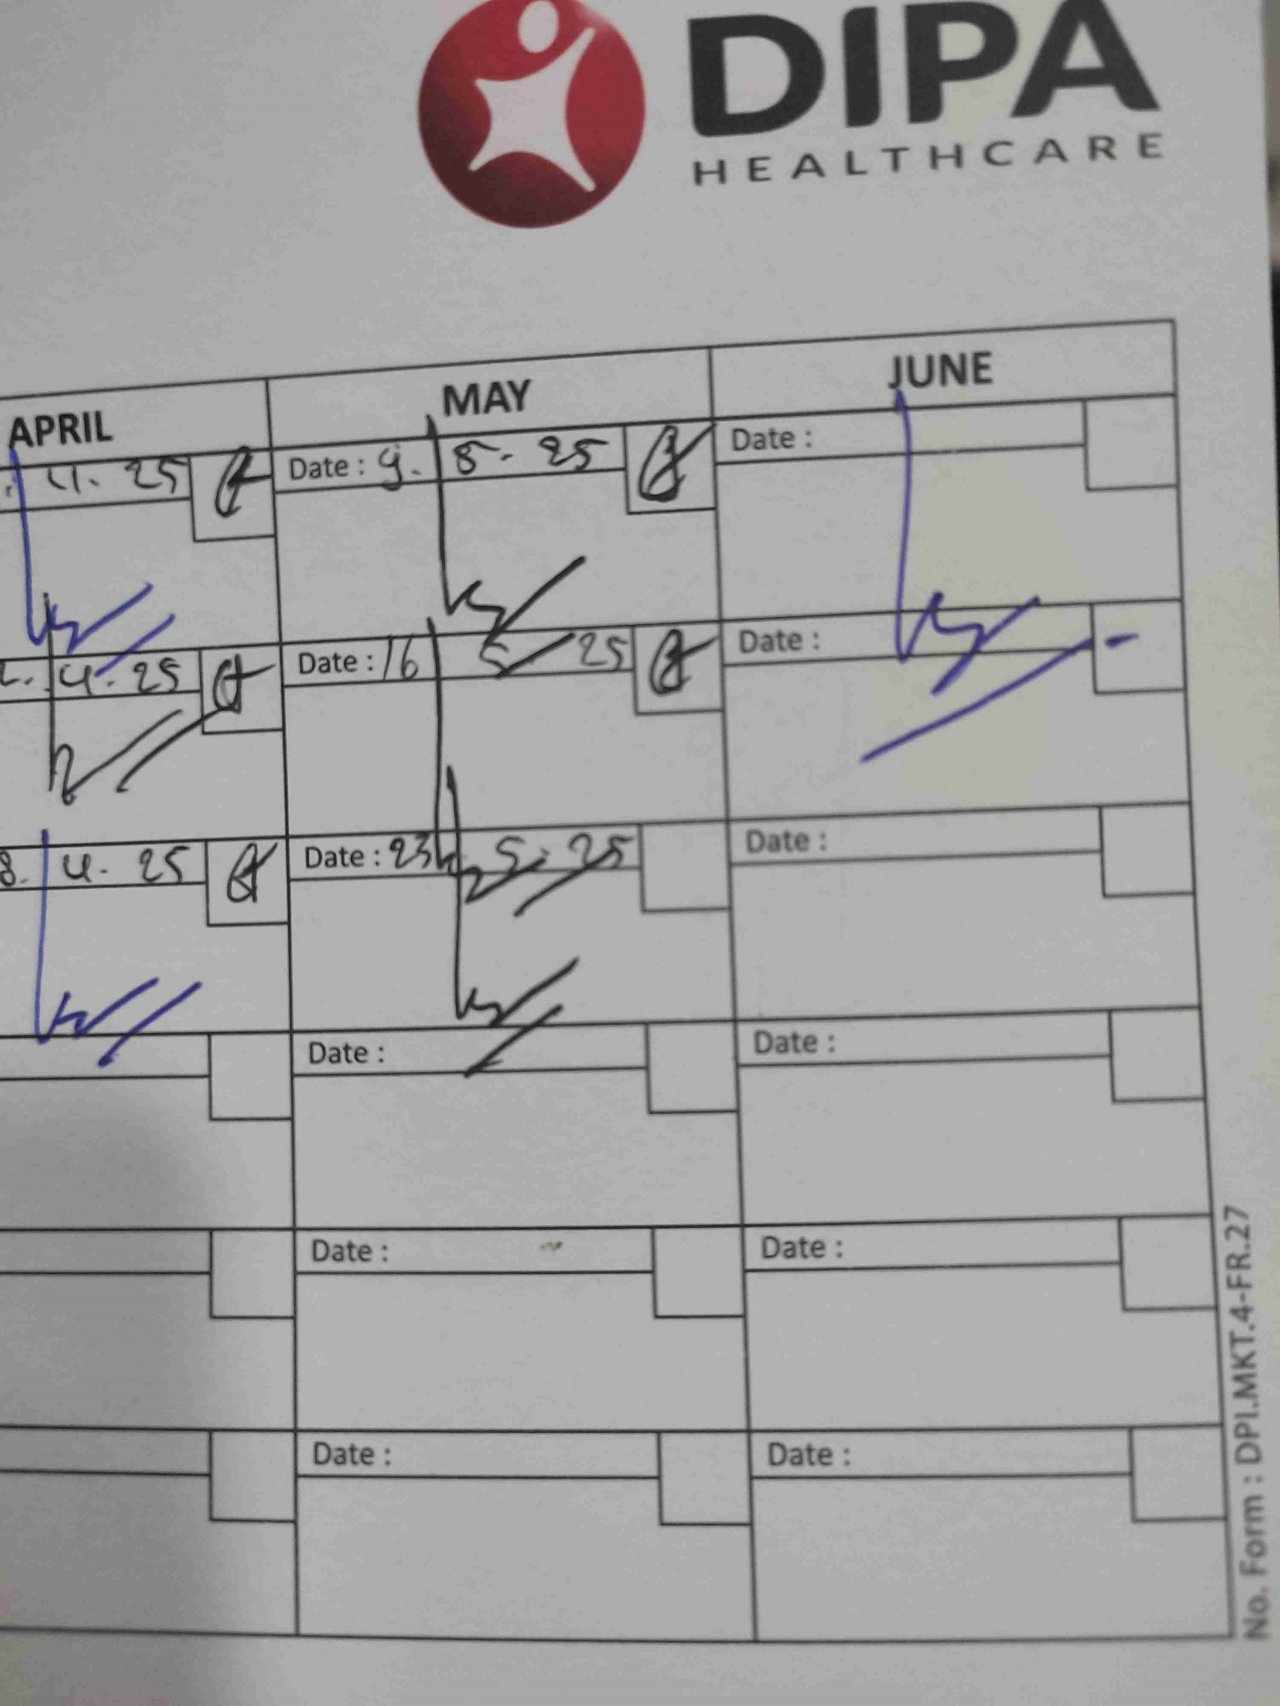 DIPA
HEALTHCARE
APRIL MAY JUNE
4. 25 Date : 9. 5. 25 Date :
4. 25 Date : 16 5 25 Date :
8. 4. 25 Date : 23 5. 25 Date :
Date : Date :
Date : Date :
Date : Date :
No. Form : DPI.MKT.4-FR.27